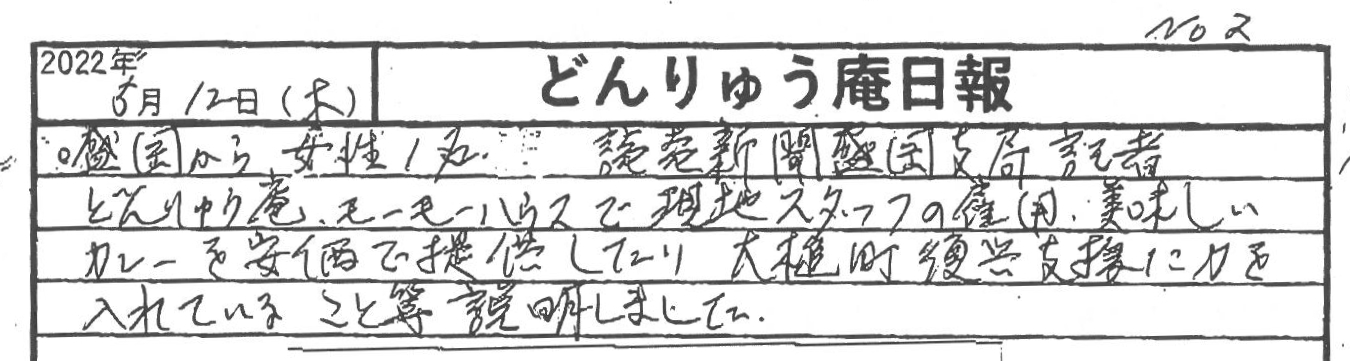 No 2
2022年
5月12日(木)
どんりゅう庵日報
○盛岡から女性1名. 読売新聞盛岡支局記者
どんりゅう庵、モーモーハウスで現地スタッフの雇用、美味しい
カレーを安価で提供したり 大槌町復興支援に力を
入れていること等説明しました.